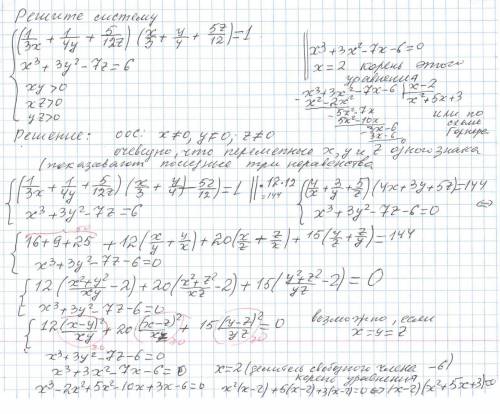 Решите систему
(1/3x + 1/4y + 5/12z)(x/3 + y/4 + 5z/12) = 1
x³ + 3y² - 7z = 6
xy > 0
xz > 0
yz > 0
x³ + 3x² - 7x - 6 = 0
x = 2 корень этого
уравнения
x³ + 3x² - 7x - 6 | x - 2
x³ - 2x² x² + 5x + 3
5x² - 7x
5x² - 10x или по
3x - 6 схеме
3x - 6 Горнера
0
Решение: оос: x ≠ 0, y ≠ 0, z ≠ 0
очевидно, что переменные x, y и z одного знака
(показывают последние три неравенства
(1/3x + 1/4y + 5/12z)(x/3 + y/4 + 5z/12) = 1 || · 12·12 = 144
x³ + 3y² - 7z = 6
(4/x + 3/y + 5/z)(4x + 3y + 5z) = 144
x³ + 3y² - 7z - 6 = 0 ⇔
16 + 9 + 25 + 12(x/y + y/x) + 20(x/z + z/x) + 15(y/z + z/y) = 144
x³ + 3y² - 7z - 6 = 0
12((x² + y²)/xy - 2) + 20((x² + z²)/xz - 2) + 15((y² + z²)/yz - 2) = 0
x³ + 3y² - 7z - 6 = 0
12(x - y)²/xy + 20(x - z)²/xz + 15(y - z)²/yz = 0 возможно, если
x = y = z
x³ + 3y² - 7z - 6 = 0
x³ + 3x² - 7x - 6 = 0 x = 2 (делитель свободного члена -6)
корень уравнения
x³ - 2x² + 5x² - 10x + 3x - 6 = 0 x²(x - 2) + 5(x - 2) + 3(x - 2) = 0 ⇔ (x - 2)(x² + 5x + 3) = 0